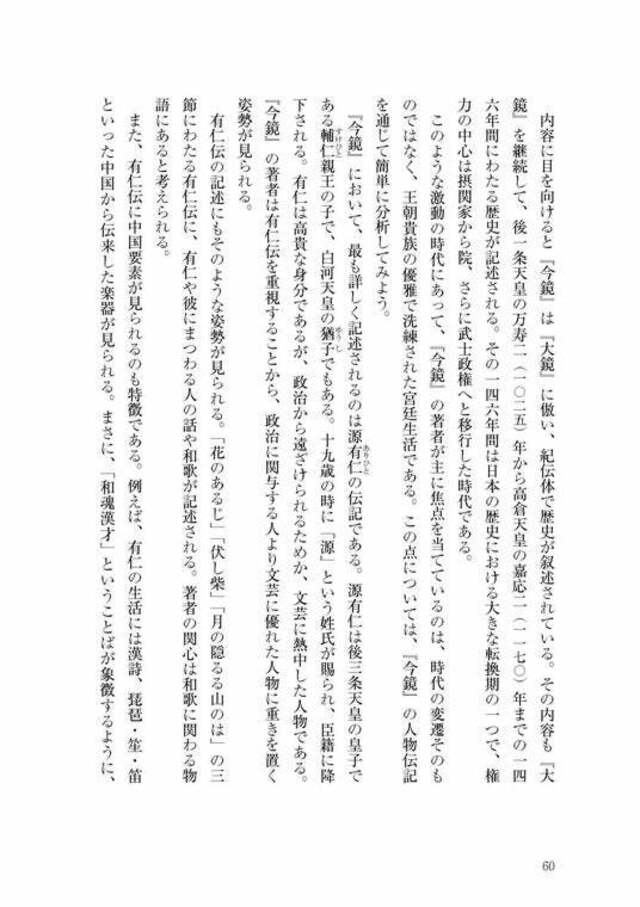 内容に目を向けると『今鏡』は『大鏡』に倣い、紀伝体で歴史が叙述されている。その内容も『大
鏡』を継続して、後一条天皇の万寿二（一〇二五）年から高倉天皇の嘉応二（一一七〇）年までの一四
六年間にわたる歴史が記述される。その一四六年間は日本の歴史における大きな転換期の一つで、権
力の中心は摂関家から院、さらに武士政権へと移行した時代である。
このような激動の時代にあって、『今鏡』の著者が主に焦点を当てているのは、時代の変遷そのも
のではなく、王朝貴族の優雅で洗練された宮廷生活である。この点については、『今鏡』の人物伝記
を通じて簡単に分析してみよう。
『今鏡』において、最も詳しく記述されるのは源有仁の伝記である。源有仁は後三条天皇の皇子で
ありひと
ある輔仁親王の子で、白河天皇の猶子でもある。十九歳の時に「源」という姓氏が賜られ、臣籍に降
すけひと
ゆうし
下される。有仁は高貴な身分であるが、政治から遠ざけられるためか、文芸に熱中した人物である。
『今鏡』の著者は有仁伝を重視することから、政治に関与する人より文芸に優れた人物に重きを置く
姿勢が見られる。
有仁伝の記述にもそのような姿勢が見られる。「花のあるじ」「伏し柴」「月の隠るる山のは」の三
節にわたる有仁伝に、有仁や彼にまつわる人の話や和歌が記述される。著者の関心は和歌に関わる物
語にあると考えられる。
また、有仁伝に中国要素が見られるのも特徴である。例えば、有仁の生活には漢詩、琵琶・笙・笛
といった中国から伝来した楽器が見られる。まさに、「和魂漢才」ということばが象徴するように、
60